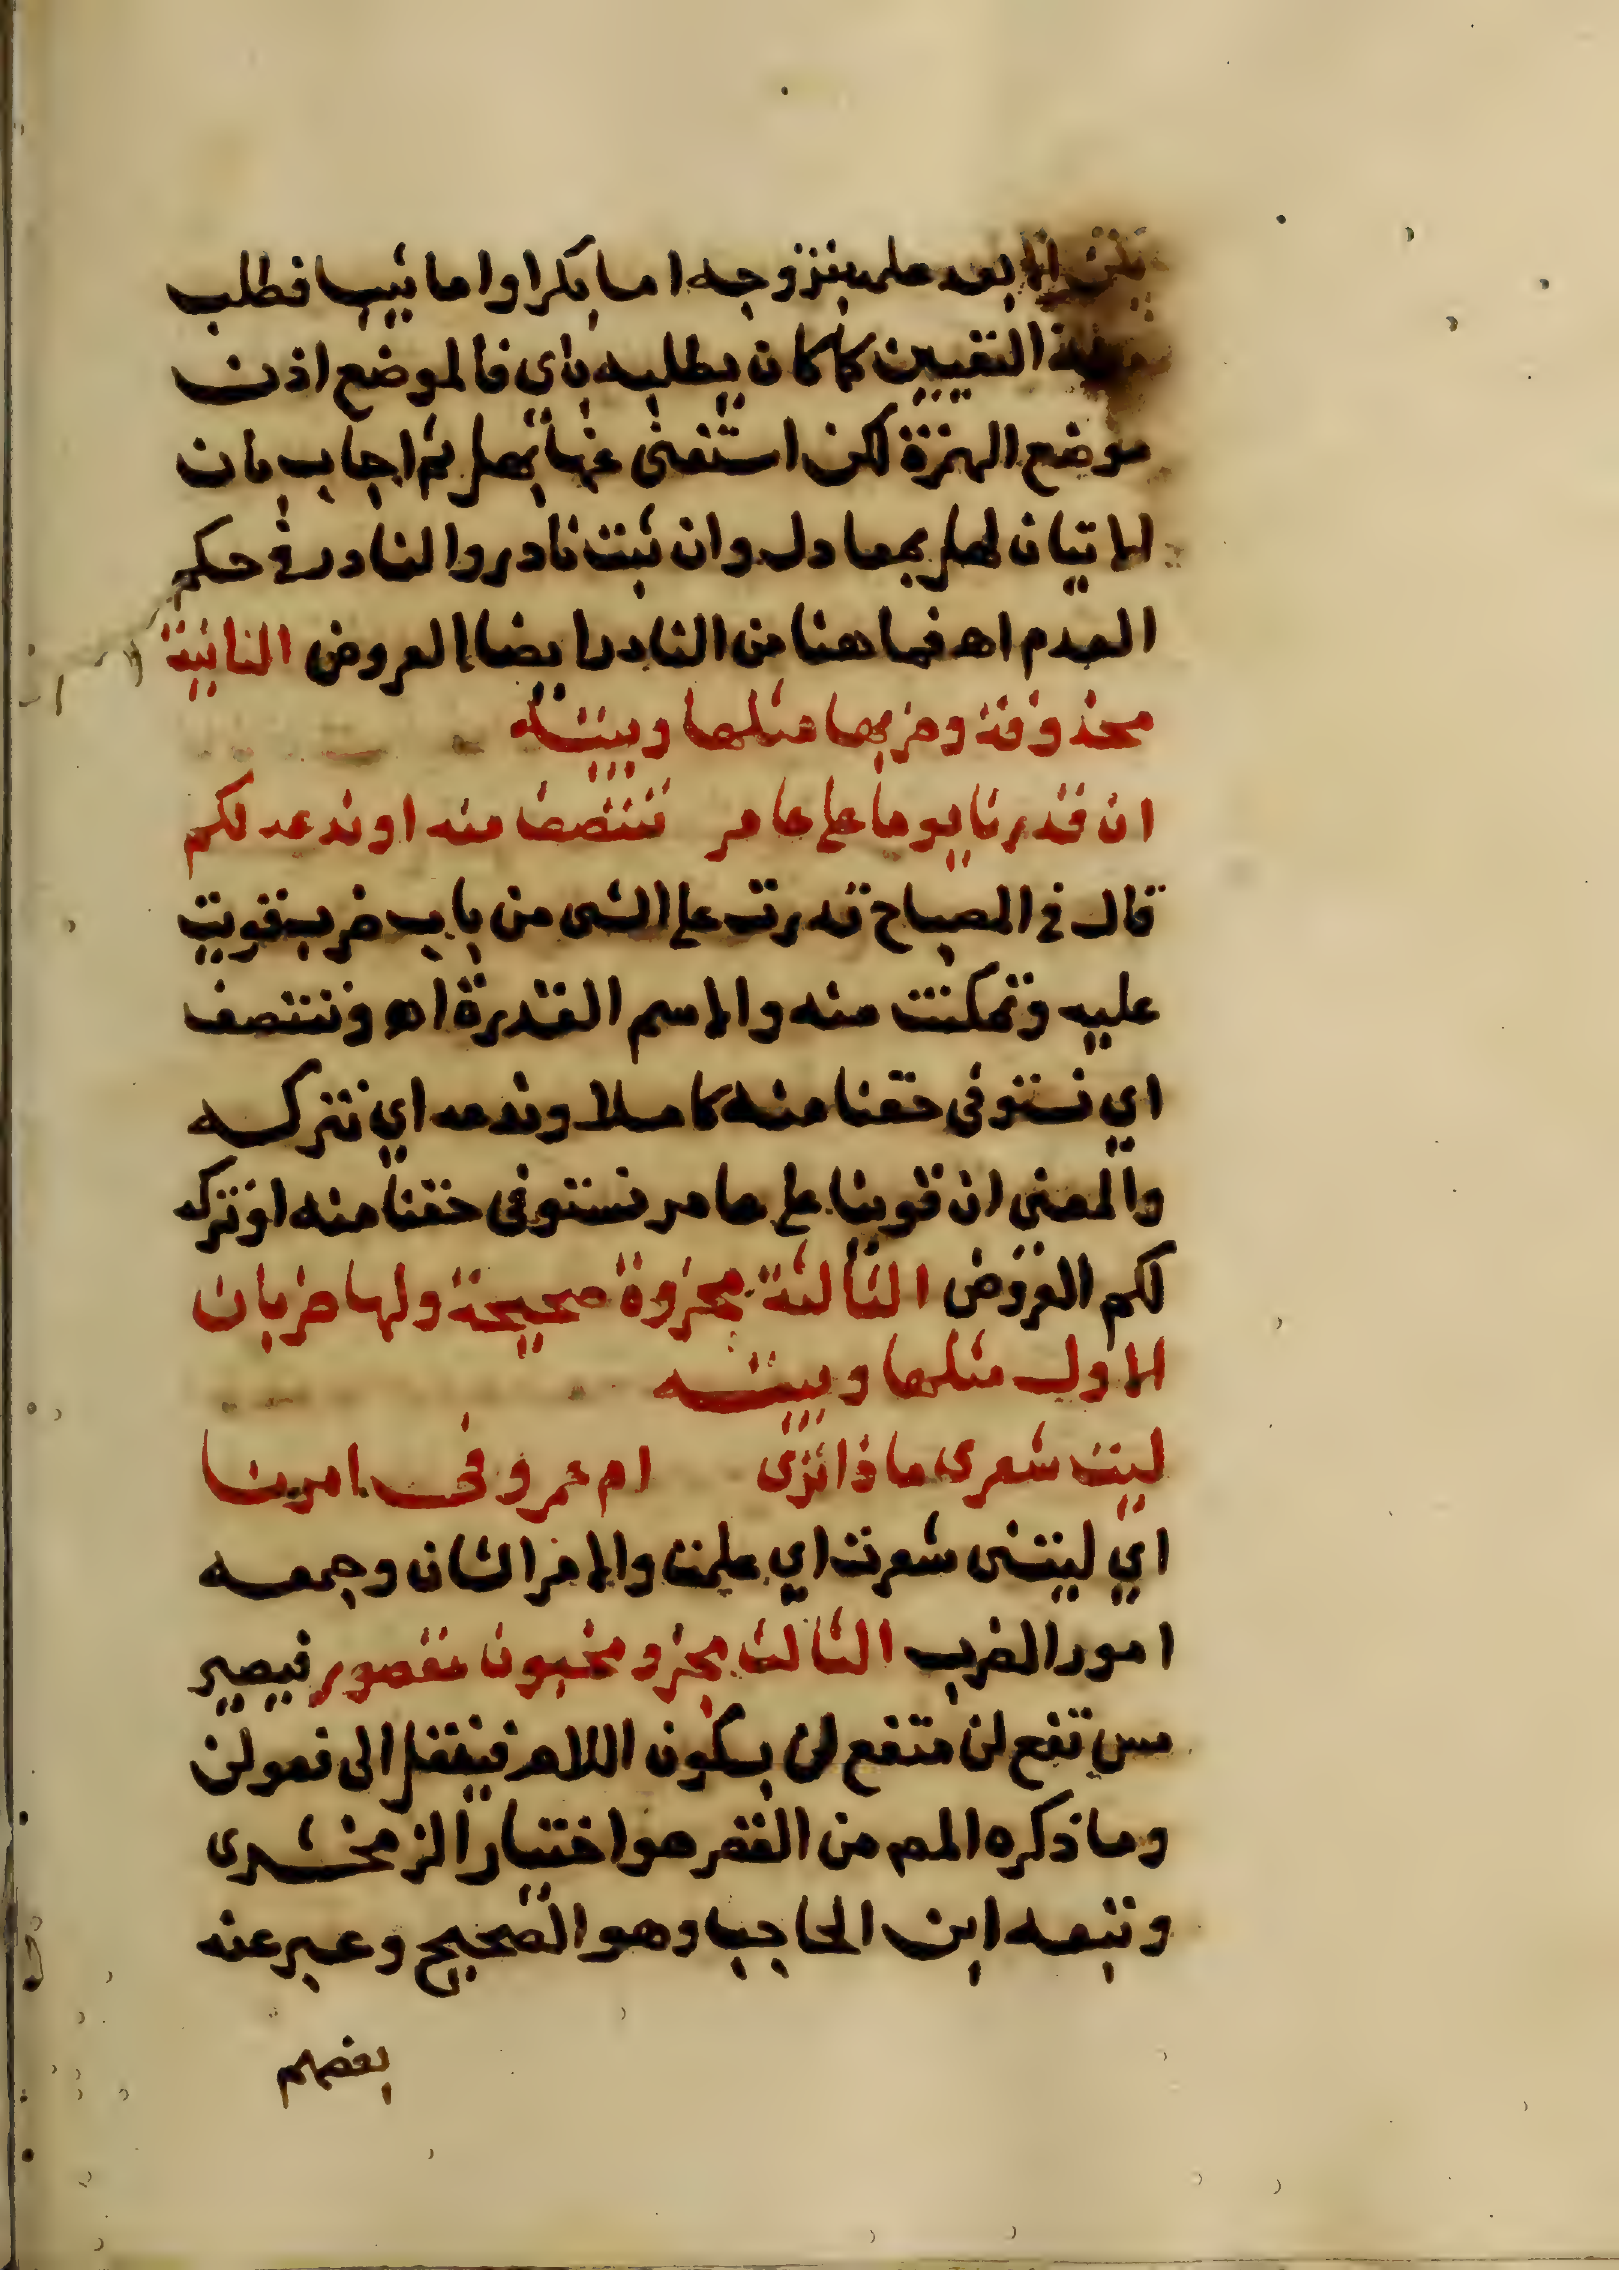 يكن الا بعد علمه بتزوجه اما بكرا واما ثيبا فطلب
منه التعيين كما كان يطلبه باي فالموضع اذن
موضع الهمزة لكن استغنى عنها بهل ثم اجاب بان
الاتيان لهل بمعادل وان ثبت نادر والنادر في حكم
العدم اهـ فما هنا من النادر ايضا العروض الثانية
محذوفة وضربها مثلها وبيته
ان قدرنا يوما على عامر ننتصف منه او ندعه لكم
قال في المصباح قدرت على الشي من باب ضرب قويت
عليه وتمكنت منه والاسم القدرة اهـ وننتصف
اي نستوفي حقنا منه كاملا وندعه اي نتركه
والمعنى ان قوينا على عامر نستوفى حقنا منه او نتركه
لكم العروض الثالثة مجزوة صحيحة ولها ضربان
الاول مثلها وبيته
ليت شعرى ماذا ترى ام عمرو في امرنا
اي ليتني شعرت اي علمت والامر الشان وجمعه
امور الضرب الثالث مجزو مخبون مقصور فيصير
مس تفع لن متفع لن بسكون اللام فينقل الى فعولن
وما ذكره المص من القصر هو اختيار الزمخشرى
وتبعه ابن الحاجب وهو الصحيح وعبر عنه
بعضهم